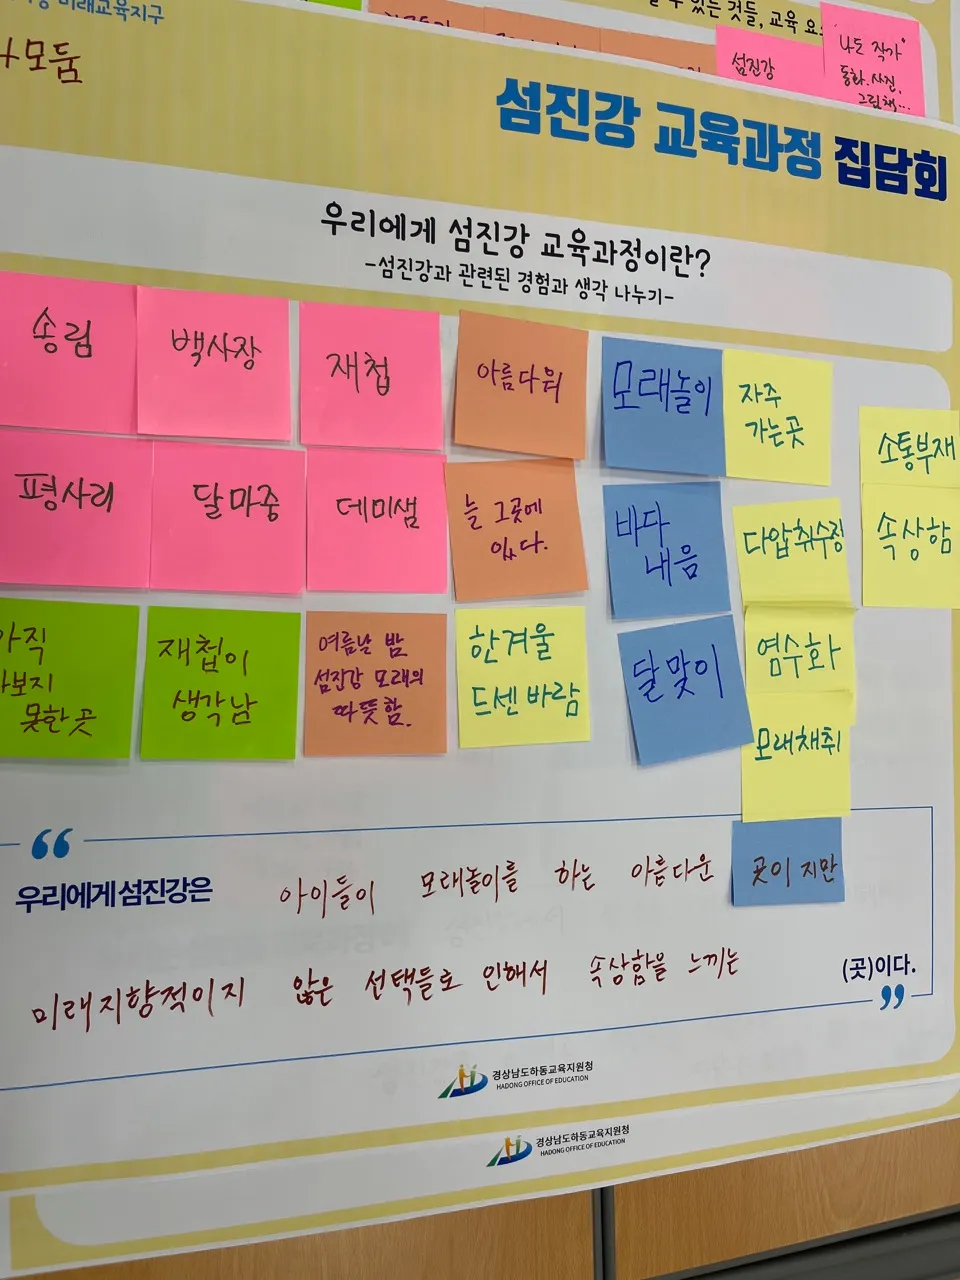 미래교육지구
모둠
것들, 교육
섬진강
나도 작가
동화.사진.
그림책...
섬진강 교육과정 집담회
우리에게 섬진강 교육과정이란?
-섬진강과 관련된 경험과 생각 나누기-
송림
백사장
재첩
아름다워
모래놀이
자주
가는곳
소통부재
평사리
달마중
데미샘
늘 그곳에
있다.
바다
내음
다압취수장
속상함
아직
가보지
못한 곳
재첩이
생각남
여름날 밤
섬진강 모래의
따뜻함.
한겨울
드센 바람
달맞이
염수화
모래채취
“
우리에게 섬진강은 아이들이 모래놀이를 하는 아름다운 곳이 지만
미래지향적이지 않은 선택들로 인해서 속상함을 느끼는 (곳)이다.
”
경상남도하동교육지원청
HADONG OFFICE OF EDUCATION
경상남도하동교육지원청
HADONG OFFICE OF EDUCATION